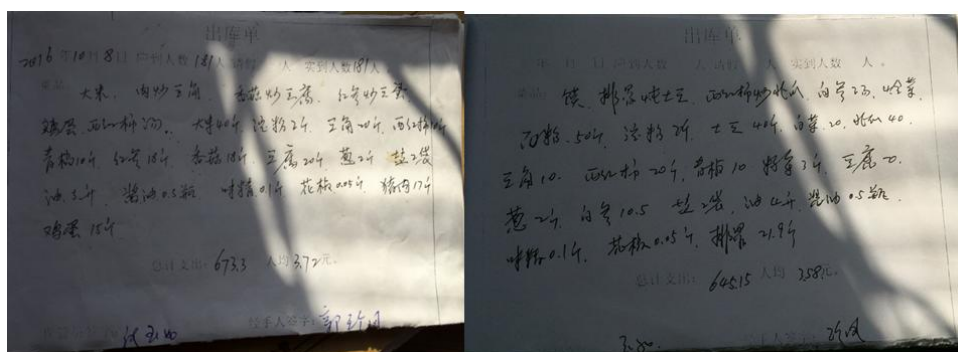 出库单
2016年10月8日 应到人数181人 请假 人 实到人数181人。
大米、肉炒豆角、香菇炒豆腐、红萝炒豆头
鸡蛋、西红柿汤。大米40斤、淀粉2斤、豆角20斤、西红柿10斤
青椒10斤、红萝18斤、香菇18斤、豆腐20斤、葱2斤、盐2袋
油5斤、酱油0.5瓶、味精0.1斤、花椒0.05斤、猪肉17斤
鸡蛋15斤
总计支出:673.3 人均3.72元。
经手人签字:
出库单
年 月 日 应到人数 人 请假 人 实到人数 人。
馍、排骨炖土豆、西红柿炒 白萝汤、
面粉50斤、淀粉2斤、土豆40斤、白菜20、 40、
豆角10、西红柿20斤、青椒10 3斤、豆腐20、
葱2斤、白萝10.5 盐2袋、油4斤、酱油0.5瓶、
味精0.1斤、花椒0.05斤、排骨21.9斤
总计支出:645.15 人均3.58元。